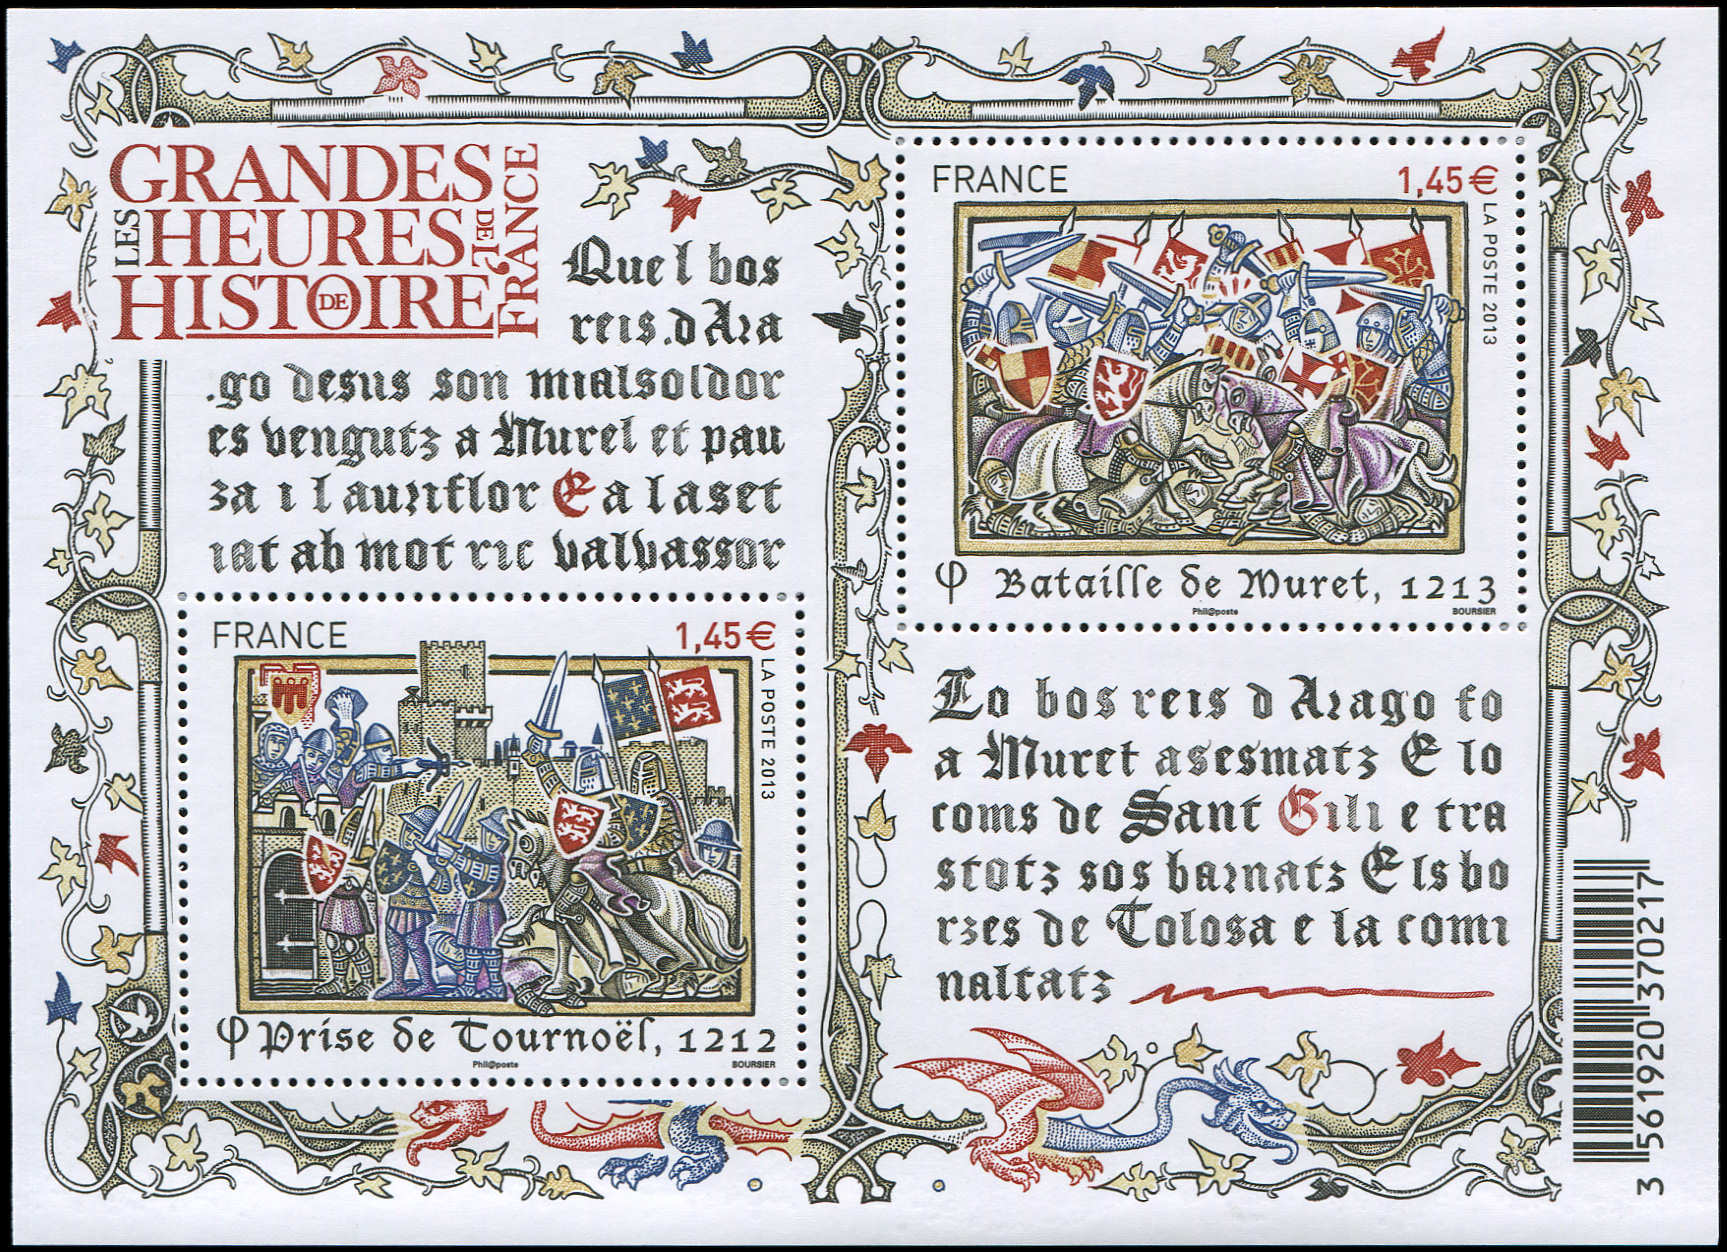 LES GRANDES
HEURES DE L'
HISTOIRE DE
FRANCE
Que l bos
reis.d Ara
.go desus son mialsoldor
es vengutz a Murel et pau
za i l auriflor E a l aset
iat ab mot ric valvassor
FRANCE 1,45€
LA POSTE 2013
φ Bataille de Muret, 1213
Phil@poste BOURSIER
FRANCE 1,45€
LA POSTE 2013
φ Prise de Tournoël, 1212
Phil@poste BOURSIER
Lo bos reis d Arago fo
a Muret asesmatz E lo
coms de Sant Gili e tra
stotz sos barnatz Els bo
rzes de Tolosa e la comi
naltatz
3 561920 370217